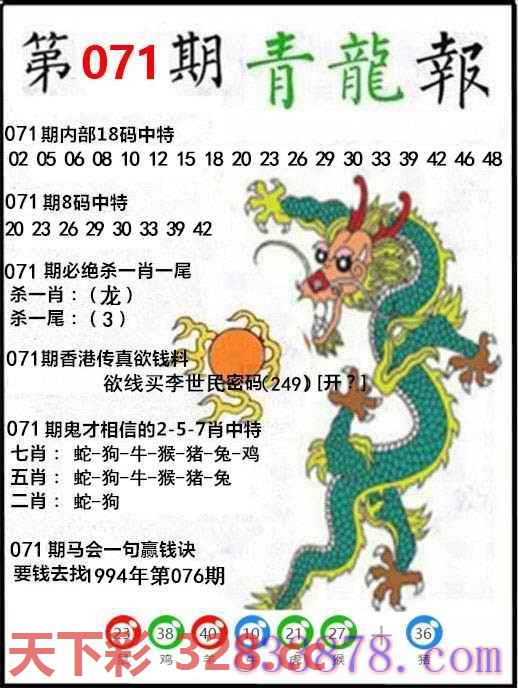 第071期 青龍報
071期内部18码中特
02 05 06 08 10 12 15 18 20 23 26 29 30 33 39 42 46 48
071期8码中特
20 23 26 29 30 33 39 42
071期必绝杀一肖一尾
杀一肖：(龙)
杀一尾：(3)
071期香港传真欲钱料
欲线买李世民密码(249)[开?]
071期鬼才相信的2-5-7肖中特
七肖： 蛇-狗-牛-猴-猪-兔-鸡
五肖： 蛇-狗-牛-猴-猪-兔
二肖： 蛇-狗
071期马会一句赢钱诀
要钱去找1994年第076期
23 38 40 10 21 27 + 36
鸡 牛 虎 猴 猪
天下彩 3283878.com